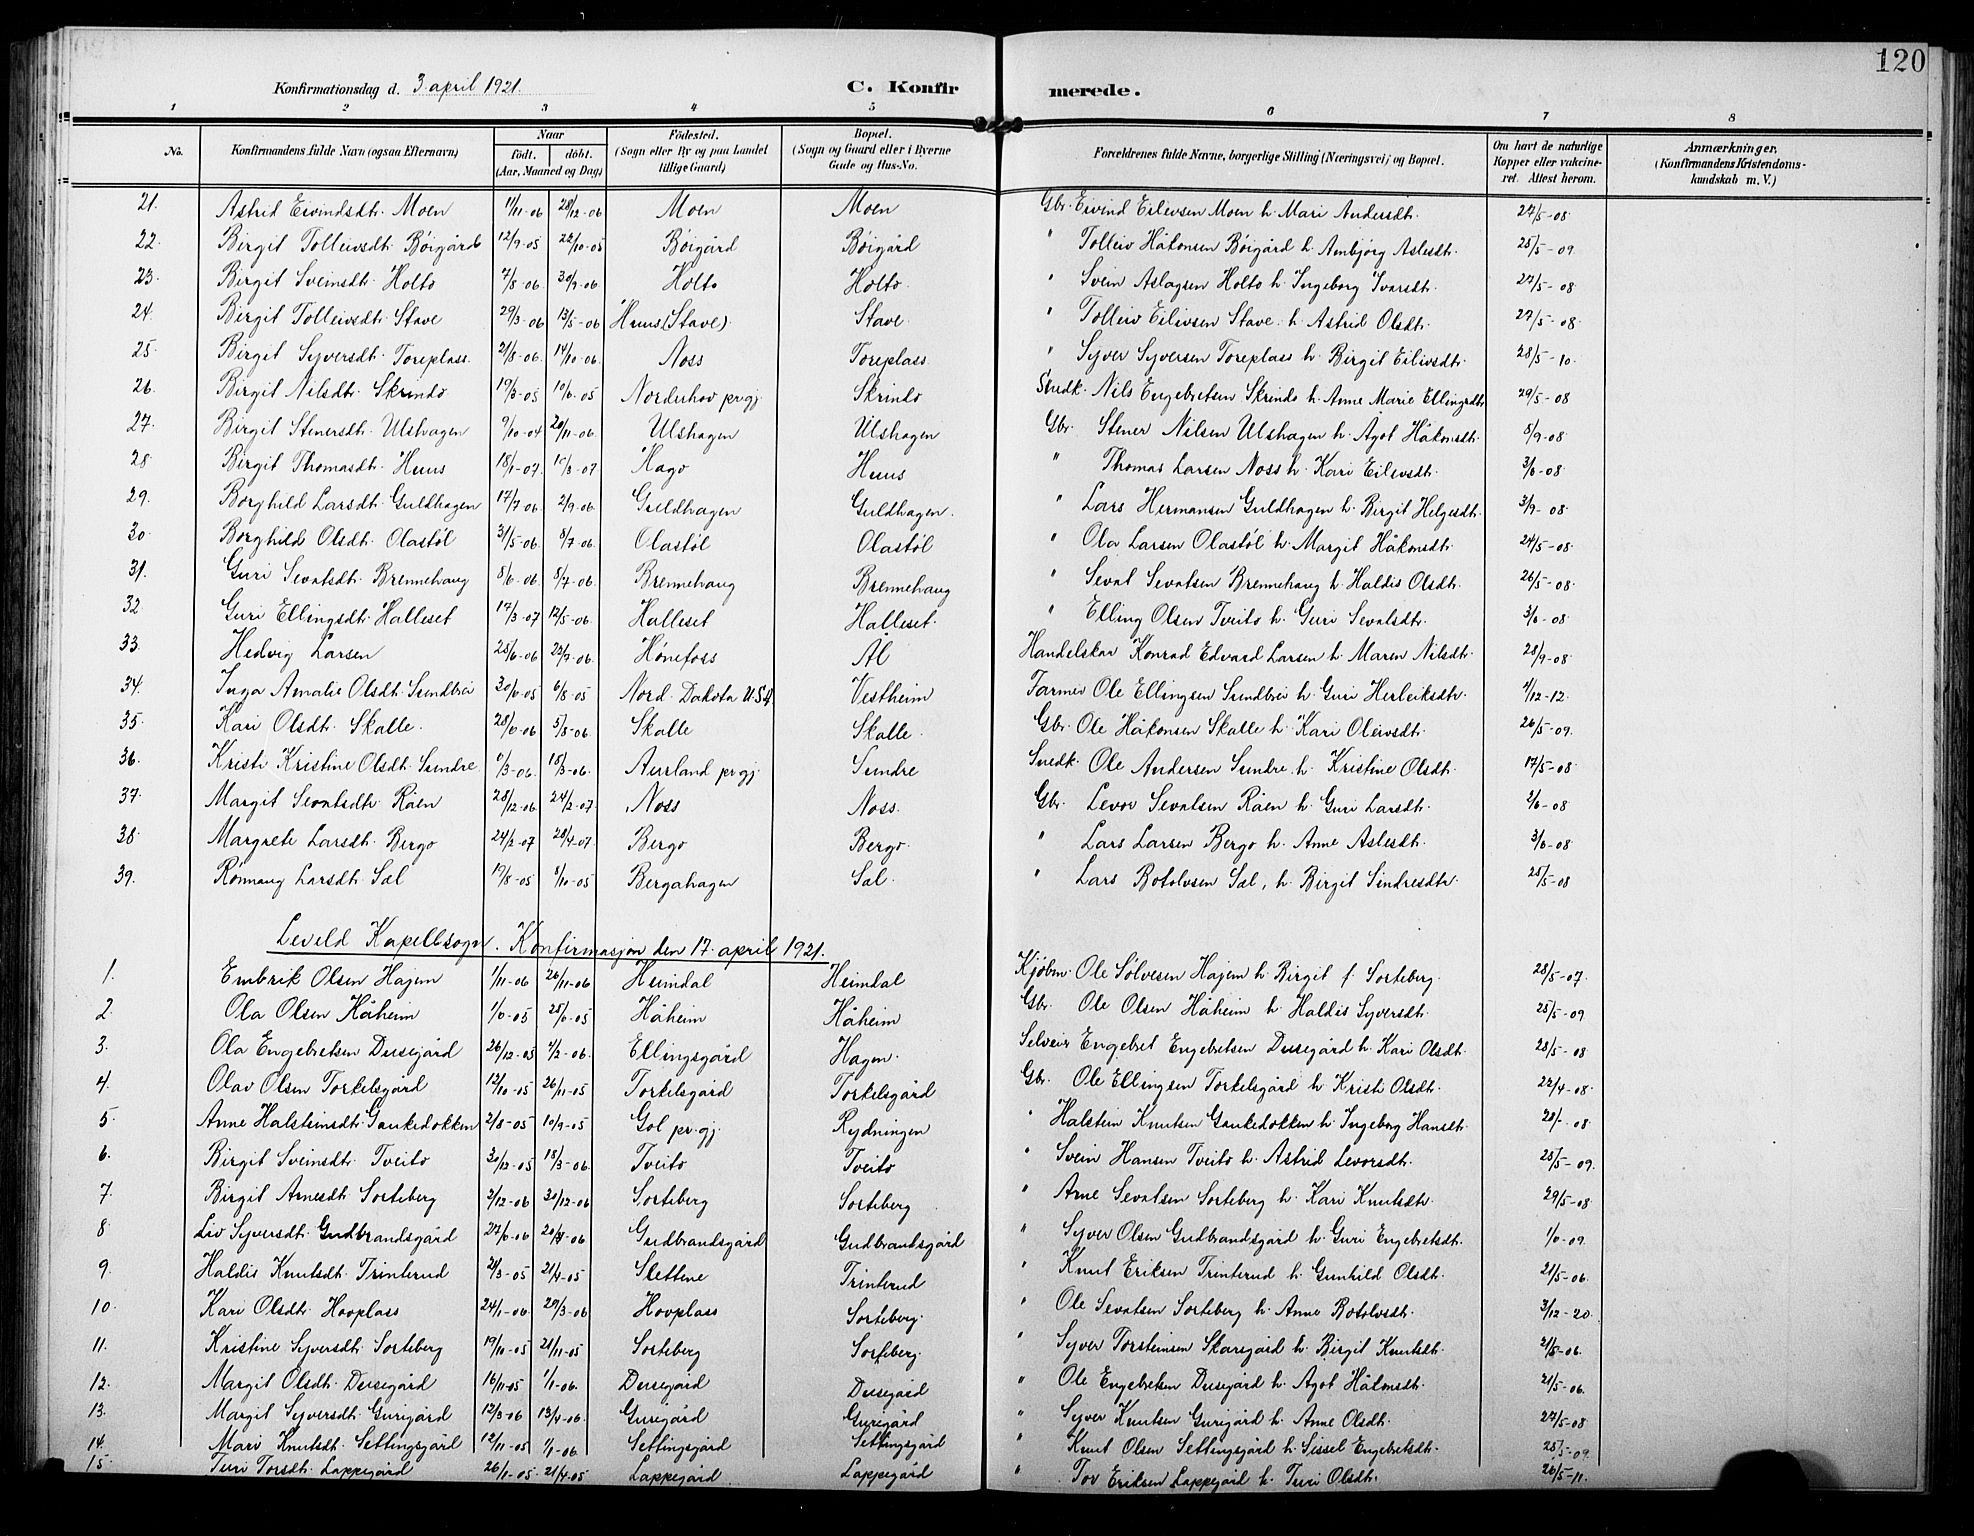 120
Konfirmationsdag d. 3 april 1921. C. Konfirmerede.
1 2 3 4 5 6 7 8
No. Konfirmandens fulde Navn (ogsaa Efternavn) Naar födt. döbt. (Aar, Maaned og Dag) Födested. (Sogn eller By og paa Landet tillige Gaard) Bopæl. (Sogn og Gaard eller i Byerne Gade og Hus-No. Forældrenes fulde Navne, borgerlige Stilling (Næringsvei) og Bopæl. Om havt de naturlige Kopper eller vakcineret. Attest herom. Anmærkninger, (Konfirmandens Kristendomskundskab m. V.)
21. Astrid Eivindsdt. Moen 11/11-06 28/12-06 Moen Moen Gbr. Eivind Eilevsen Moen h. Mari Andersdt. 27/5-08
22. Birgit Tolleivsdt. Böigård 12/9-05 22/10-05 Böigård Böigård " Tolleiv Håkonsen Böigård h. Aslesdt. 25/5-09
23. Birgit Sveinsdt. Holto 7/8-06 30/9-06 Holto Holto " Svein Aslagsen Holto h. Ingeborg Ivarsdt. 27/5-08
24. Birgit Tolleivsdt. Stave 29/3-06 13/5-06 Huus (Stave) Stave " Tolleiv Eilivsen Stave h. Astrid Olsdt. 27/5-08
25. Birgit Syversdt. Toreplass 21/8-06 14/10-06 Noss Toreplass " Syver Syversen Toreplass h. Birgit Eilivsdt. 28/5-10
26. Birgit Nilsdt. Skrindo 19/3-05 10/6-05 Norderhov pr.gj. Skrindo Snedk. Nils Engebretsen Skrindo h. Anne Marie Ellingsdt. 29/5-08
27. Birgit Stenersdt. Ulshagen 9/10-04 20/11-06 Ulshagen Ulshagen Gbr. Stener Nilsen Ulshagen h. Agot Håkonsdt. 8/9-08
28 Birgit Thomasdt. Huus 18/1-07 /3-07 Hago Huus " Thomas Larsen Noss h. Kari Eilevsdt. 3/6-08
29. Borghild Larsdt. Guldhagen 17/7-06 2/9-06 Guldhagen Guldhagen. " Lars Hermansen Guldhagen h. Birgit Helgesdt. 3/9-08
30. Borghild Olsdt. Olastöl 31/5-06 8/7-06 Olastöl Olastöl " Ola Larsen Olastöl h. Margit Håkonsdt. 24/5-08
31. Guri Sevatsdt. Brennehaug 8/6-06 8/7-06 Brennehaug Brennehaug " Sevat Sevatsen Brennehaug h. Haldis Olsdt. 26/5-08
32. Guri Ellingsdt. Halleset 17/3-07 12/5-06 Halleset Halleset. " Elling Olsen Tveito h. Guri Sevatsdt. 3/6-08
33. Hedvig Larsen 25/6-06 23/9-06 Hönefoss Ål Handelskar Konrad Edvard Larsen h. Maren Nilsdt. 28/9-08
34. Inga Amalie Olsdt. Sundbrei 30/6-05 6/8-05 Nord. Dakota U.S.A. Vestheim Farmer Ole Ellingsen Sundbrei h. Guri Herleiksdtr. 4/12-12
35. Kari Olsdt. Skalle. 28/6-06 5/8-06 Skalle Skalle. Gbr. Ole Håkonsen Skalle h. Kari Oleivsdt. 26/5-09
36. Kristi Kristine Olsdt. Sundre /3-06 18/3-06 Aurland pr.gj. Sundre Snedk. Ole Andersen Sundre h. Kristine Olsdt. 17/5-08
37. Margit Sevatsdtr. Råen 28/12-06 24/2-07 Noss Noss. Gbr. Levor Sevatsen Råen h. Guri Larsdt. 2/6-08
38. Margrete Larsdt. Bergo 24/2-07 28/4-07 Bergo Bergo. " Lars Larsen Bergo h. Anne Aslesdt. 3/6-08
39. Rönnaug Larsdt. Sæl 19/8-05 8/10-05 Bergahagen Sæl. " Lars Botolvsen Sæl, h. Birgit Sindresdtr. 25/5-08
Leveld Kapellsogn. Konfirmasjon den 17. april 1921.
1. Embrik Olsen Hajem 1/11-06 26/11-06 Heimdal Heimdal Kjöbm. Ole Sölvesen Hajem h. Birgit f. Sorteberg. 28/5-07.
2 Ola Olsen Håheim 1/6-05 25/6-05 Håheim Håheim Gbr. Ole Olsen Håheim h. Haldis Syversdt. 25/5-09
3. Ola Engebretsen Dusegård 26/12-05 4/2-06 Ellingsgård Hagen. Selveir Engebret Engebretsen Dusegård h. Kari Olsdt. 28/5-08
4. Olav Olsen Torkelsgård 12/10-05 26/11-05 Torkelsgård Torkelsgård Gbr. Ole Ellingsen Torkelsgård h. Kristi Olsdt. 22/4-08
5. Anne Halsteinsdt. Gaukedokken 2/8-05 10/9-05 Gol pr.gj. Rydningen " Halstein Knutsen Gaukedokken h. Ingeborg Hansdt. 28/-08
6. Birgit Sveinsdt. Tveito 30/12-05 18/3-06 Tveito Tveito " Svein Hansen Tveito h. Astrid Levorsdt. 25/5-09.
7. Birgit Arnesdt. Sorteberg 3/12-06 30/12-06 Sorteberg Sorteberg " Arne Sevatsen Sorteberg h. Kari Knutsdt. 29/5-08
8 Liv Syversdt. Gudbrandsgård 27/6-06 20/4-06 Gudbrandsgård Gudbrandsgård " Syver Olsen Gudbrandsgård h. Guri Engebretsdt. 1/6-09.
9. Haldis Knutsdt. Trinterud 2/3-05 21/4-05 Slettene Trinterud " Knut Eriksen Trinterud h. Gunhild Olsdt. 21/5-06.
10. Kari Olsdt. Hovplass 24/1-06 29/3-06 Hovplass Sorteberg. " Ole Sevatsen Sorteberg h. Anne Botolvsdt. 3/12-20.
11. Kristine Syversdt. Sorteberg 19/10-05 21/11-05 Sorteberg Sorteberg. " Syver Torsteinsen Skarsgård h. Birgit Knutsdt. 21/5-06.
12. Margit Olsdt. Dusegård 16/11-05 1/1-06. Dusegård Dusegård " Ole Engebretsen Dusegård h. Agot Håkonsdt. 21/5-06.
13. Margit Syversdt. Gurigård 12/3-06 13/4-06. Gurigård Gurigård " Syver Knutsen Gurigård h. Anne Olsdt. 27/5-08
14. Mari Knutsdt. Settingsgård 12/11-05 1/1-06. Settingsgård Settingsgård " Knut Olsen Settingsgård h. Sissel Engebretsdt. 25/5-09.
15. Turi Torsdt. Lappegård 26/1-05 21/4-05 Lappegård Lappegård " Tov Eriksen Lappegård h. Turi Olsdt. 26/5-11.